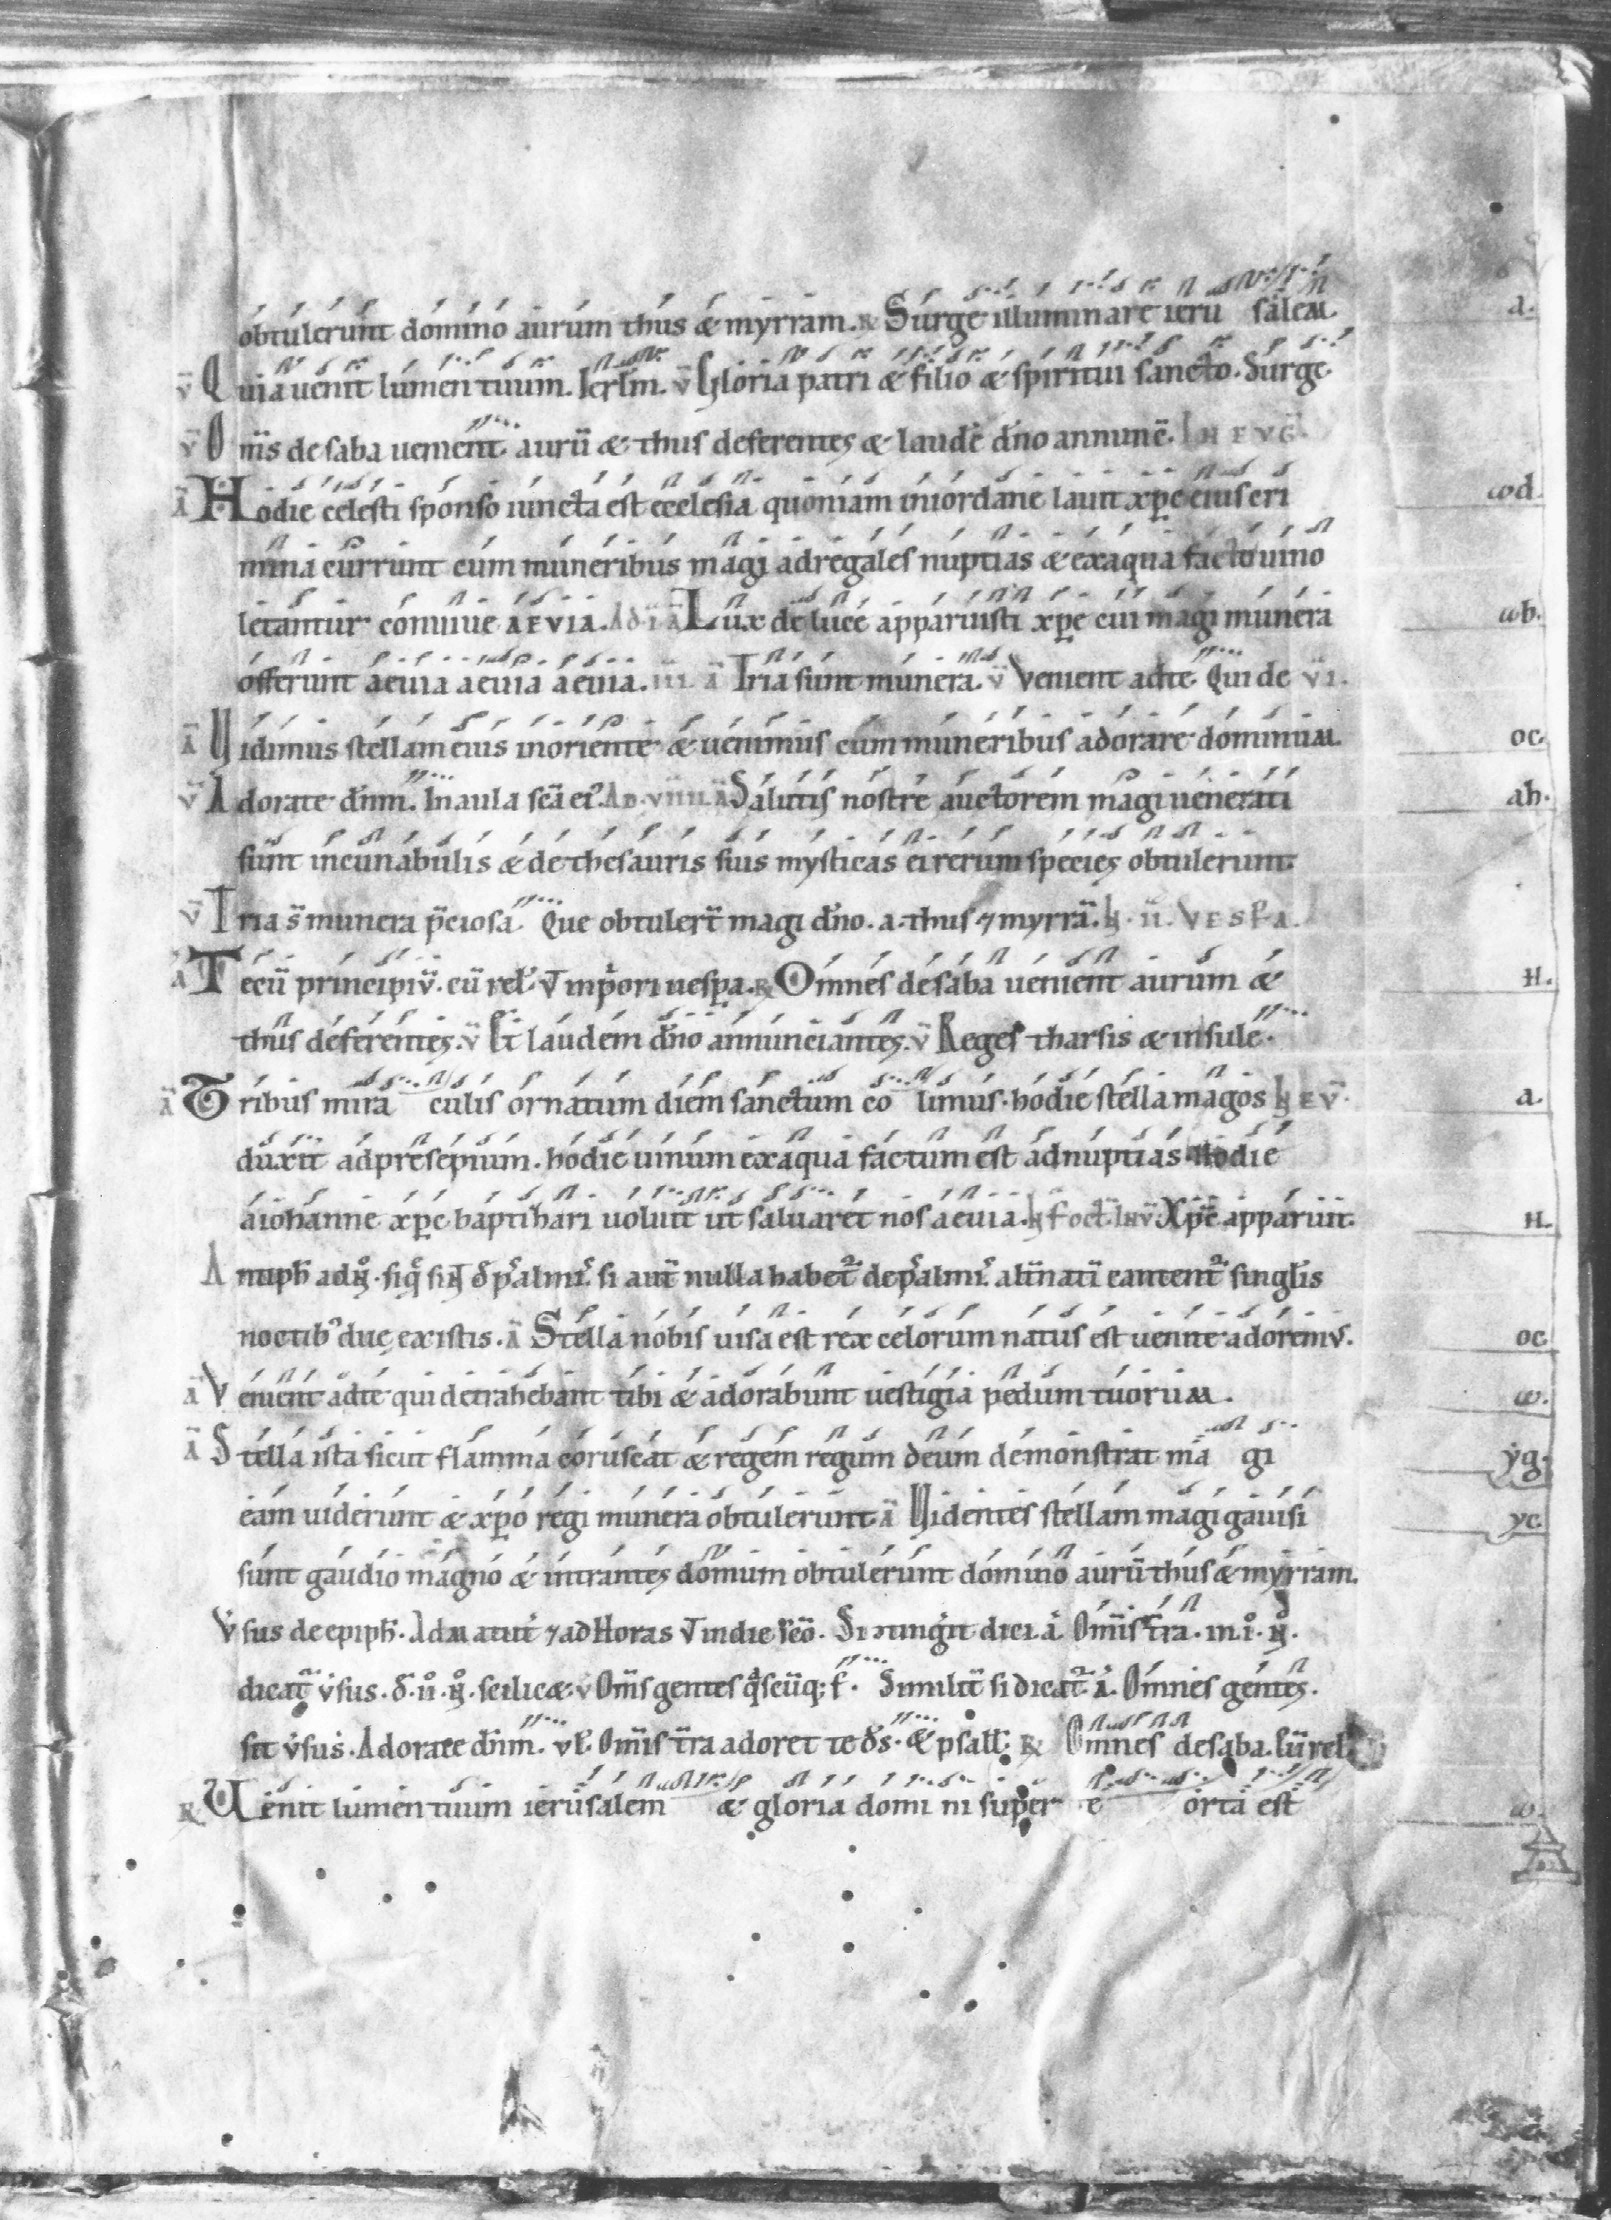 obtulerunt domino aurum thus & myrram. R Surge illuminare ieru salem. d.
v̄ Quia uenit lumen tuum. Ierl̄m. v̄ Gloria patri & filio & spiritui sancto. Surge.
v̄ Om̄s de saba uenient. aurū & thus deferentes & laudē dn̄o annunc̄. IN EVG̅.
ā Hodie celesti sponso iuncta est ecclesia quoniam in iordane lauit xp̄c eius cri ωd.
mina currunt cum muneribus magi ad regales nuptias & ex aqua facto uino
letantur conuiue AEVIA. Ad i ā Lux de luce apparuisti xp̄e cui magi munera ωb.
offerunt aeuia aeuia aeuia. iii. ā Tria sunt munera. v̄ Venient ad te. Qui de vi.
ā Vidimus stellam eius in oriente & uenimus cum muneribus adorare dominum. oc.
v̄ Adorate dn̄m. In aula scā eiꝰ. AD. viiii. ā Salutis nostre auctorem magi uenerati ah.
sunt in cunabulis & de thesauris suis mysticas ei rerum species obtulerunt.
v̄ Tria s̄ munera p̄ciosa. Que obtuler̄t magi dn̄o. a. thus ⁊ myrrā. IN. ii. VESPA.
ā Tecū principiū. cū rel̄. V̄ in p̄ori uespa. R Omnes de saba uenient aurum & H.
thus deferentes. v̄ Et laudem dn̄o annunciantes. v̄ Reges tharsis & insule.
ā Tribus mira culis ornatum diem sanctum co limus. hodie stella magos IN EV̄. a.
duxit ad presepium. hodie uinum ex aqua factum est ad nuptias. Hodie
a iohanne xp̄c baptihari uoluit ut saluaret nos aeuia. IN f oct̄. INv̄. Xp̄c apparuit. H.
noctibꝰ duc, existis. ā Stella nobis uisa est rex celorum natus est uenite adoremꝰ. oc
ā Venient ad te qui detrahebant tibi & adorabunt uestigia pedum tuorum. ω.
ā Stella ista sicut flamma coruscat & regem regum deum demonstrat ma gi yg.
eam uiderunt & xp̄o regi munera obtulerunt. ā Videntes stellam magi gauisi yc.
sunt gaudio magno & intrantes domum obtulerunt domino aurū thus & myrram.
V̄sus de epiph̄. Ad Matut̄ ⁊ ad Horas V̄ in die sc̄o. Si contigit dici ā Om̄is tr̄a. in. i. N.
sit v̄sus. Adorate dn̄m. vl̄. Om̄is tr̄a adoret te ds̄. & psall̄. R Omnes de saba. cū rel̄.
R Uenit lumen tuum ierusalem & gloria domi ni super te orta est ω.